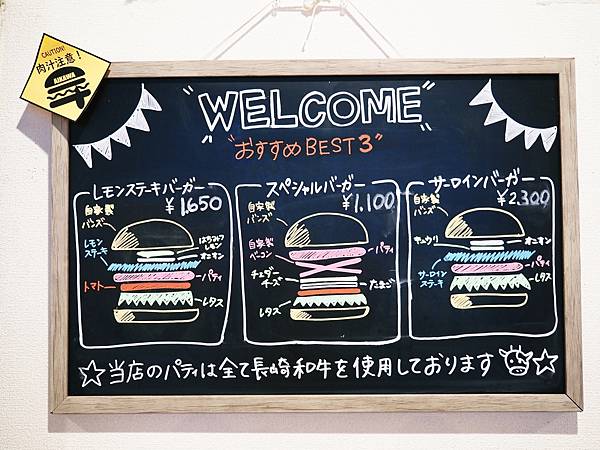 CAUTION!
肉汁注意！
AIKAWA
"WELCOME"
"おすすめBEST3"
レモンステーキバーガー
¥1,650
自家製
バンズ
はちみつ
レモン
レモン
ステーキ
オニオン
パティ
トマト
レタス
スペシャルバーガー
¥1,100
自家製
バンズ
自家製
ベーコン
パティ
チェダー
チーズ
たまご
レタス
サーロインバーガー
¥2,300
自家製
バンズ
キュウリ
オニオン
パティ
サーロイン
ステーキ
レタス
☆当店のパティは全て長崎和牛を使用しております☆